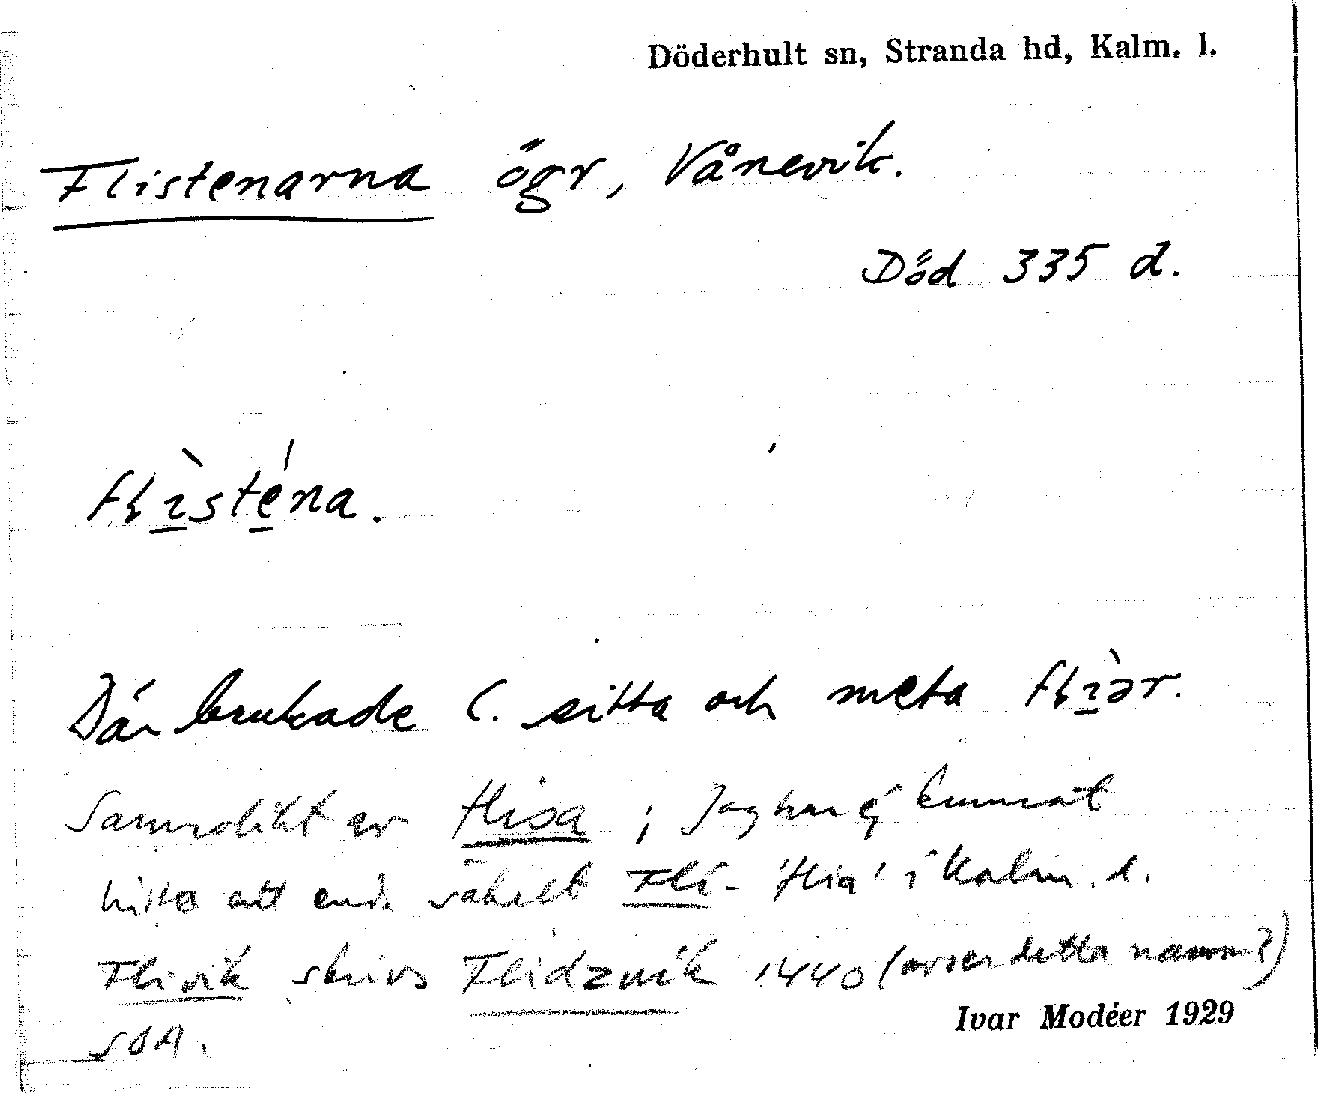 Döderhult sn, Stranda hd, Kalm. l.
Flistenarna ögr, Vånevik.
Död 335 d.
flìsténa.
Där brukade (. sitta och meta flìər.
Sannolikt av flisa; Jag har ej kunnat
hitta ett enda säkert Fli- 'flia' i Kalm. l.
Flivik skrivs Flidzuik 1440 (avser detta namn?)
SOA.
Ivar Modéer 1929